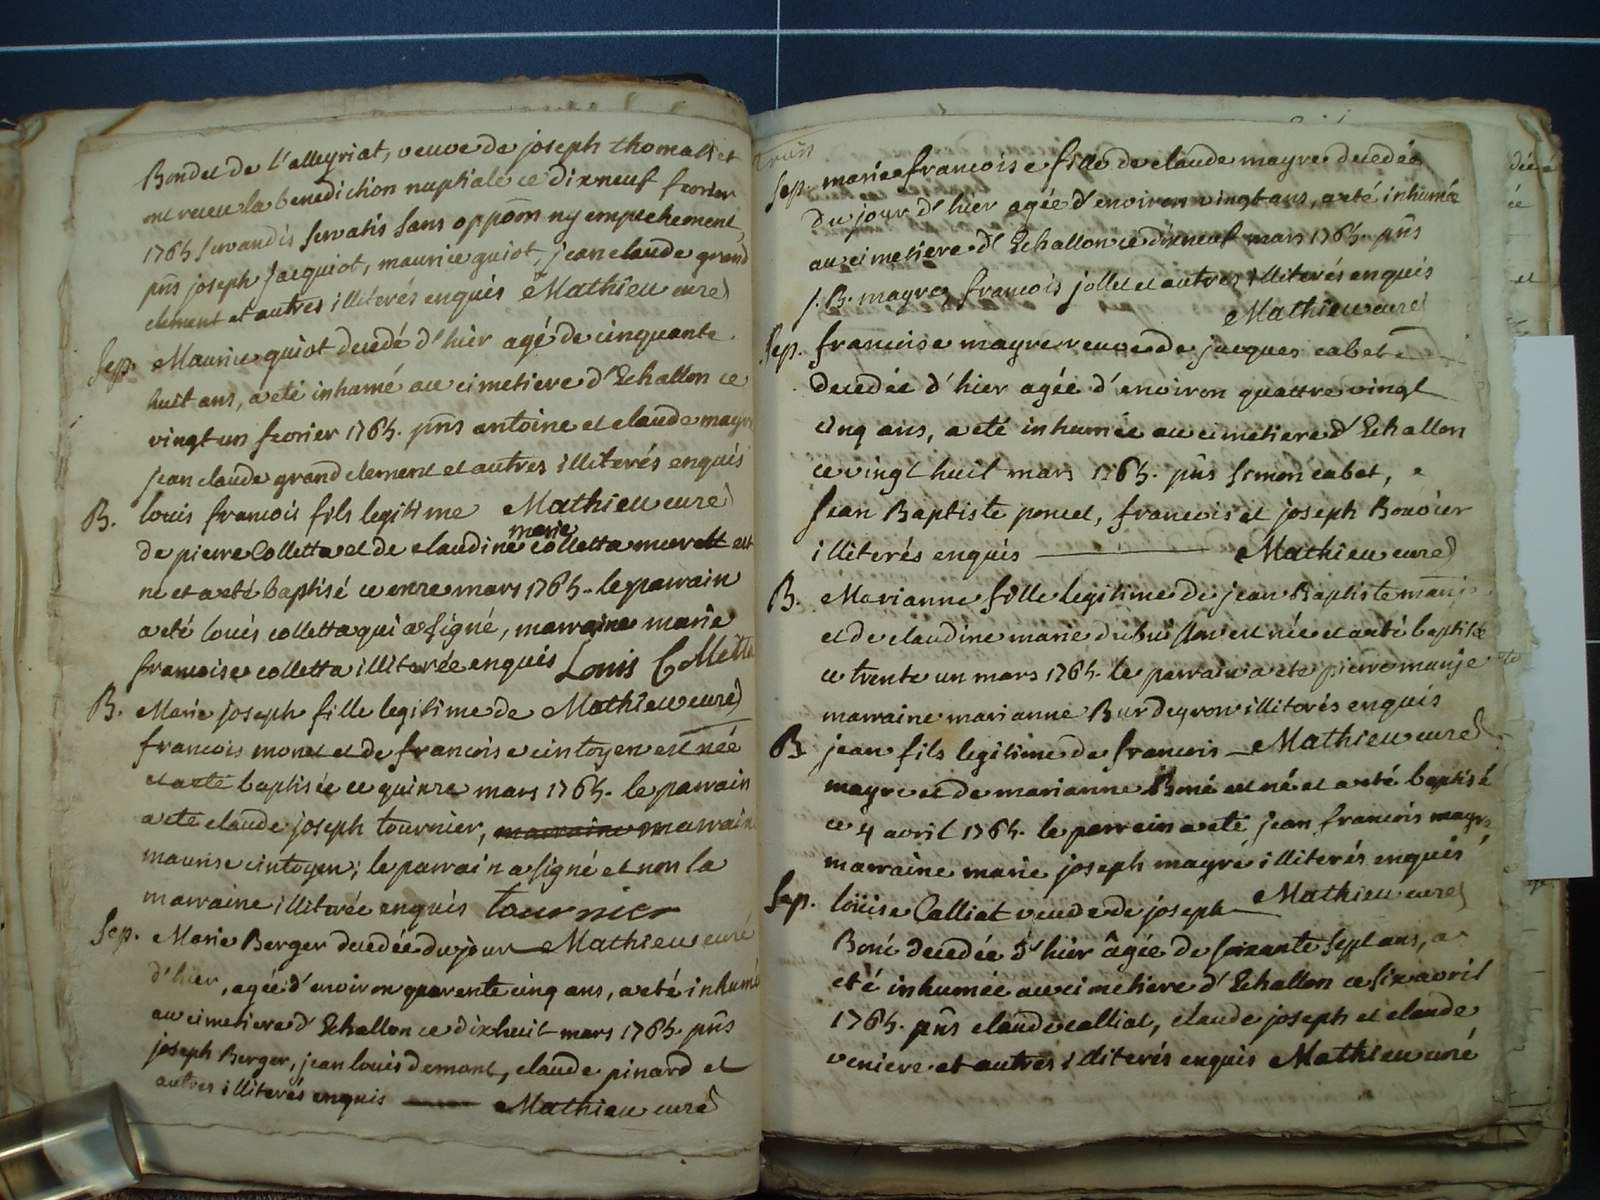 Bondet de l'alleyriat, veuve de joseph thomasset
ont receu la benediction nuptiale ce dixneuf fevrier
1765 servandis servatis sans oppõon ny empechement,
pñs joseph Jacquiot, maurice guiot, jean claude grand
clement et autres illiterés enquis Mathieu curé
Sep. Maurice guiot decedé d'hier agé de cinquante
huit ans, a eté inhumé au cimetiere d'Echallon ce
vingt un fevrier 1765. pñs antoine et claude mayre
jean claude grand clement et autres illiterés enquis
B. louis francois fils legitime Mathieu curé
marie
de pierre Colletta et de claudine colletta murelt est
né et a eté baptisé ce onze mars 1765. le parrain
a eté louis colletta qui a signé, marraine marie
francoise colletta illiterée enquis Louis Colletta
B. Marie joseph fille legitime de Mathieu curé
francois monet et de francoise cintoyen est née
et a eté baptisée ce quinze mars 1765. le parrain
a eté claude joseph tournier, marraine marraine
maurise cintoyen; le parrain a signé et non la
marraine illiterée enquis tournier
Sep. Marie Berger decedée du jour Mathieu curé
d'hier, agée d'environ quarente cinq ans, a eté inhumé
au cimetiere d'Echallon ce dixhuit mars 1765. pñs
joseph Berger, jean louis demont, claude pinard et
autres illiterés enquis Mathieu curé
Sep. marie francoise fille de claude mayre decedée
du jour d'hier agée d'environ vingt ans, a eté inhumée
au cimetiere d'Echallon ce dixneuf mars 1765. pñs
j. B. mayre, francois jollet et autres illiterés enquis
Mathieu curé
Sep. francoise mayre veuve de jacques cabet
decedée d'hier agée d'environ quattre vingt
cinq ans, a eté inhumée au cimetiere d'Echallon
ce vingt huit mars 1765. pñs simon cabet,
jean Baptiste poncet, francois et joseph Bouvier
illiterés enquis Mathieu curé
B. Marianne fille legitime de jean Baptiste manje
et de claudine marie dubuisson est née et a eté baptisée
ce trente un mars 1765. le parrain a eté pierre manje
marraine marianne Burdeyron illiterés enquis
B jean fils legitime de francois Mathieu curé
mayre et de marianne Boné est né et a eté baptisé
ce 4 avril 1765. le parrain a eté jean francois mayre
marraine marie joseph mayre illiterés enquis
Sep. loüise Calliat veuve de joseph Mathieu curé
Boné decedée d'hier âgée de soixante sept ans, a
eté inhumée au cimetiere d'Echallon ce six avril
1765. pñs claude calliat, claude joseph et claude
veniere et autres illiterés enquis Mathieu curé